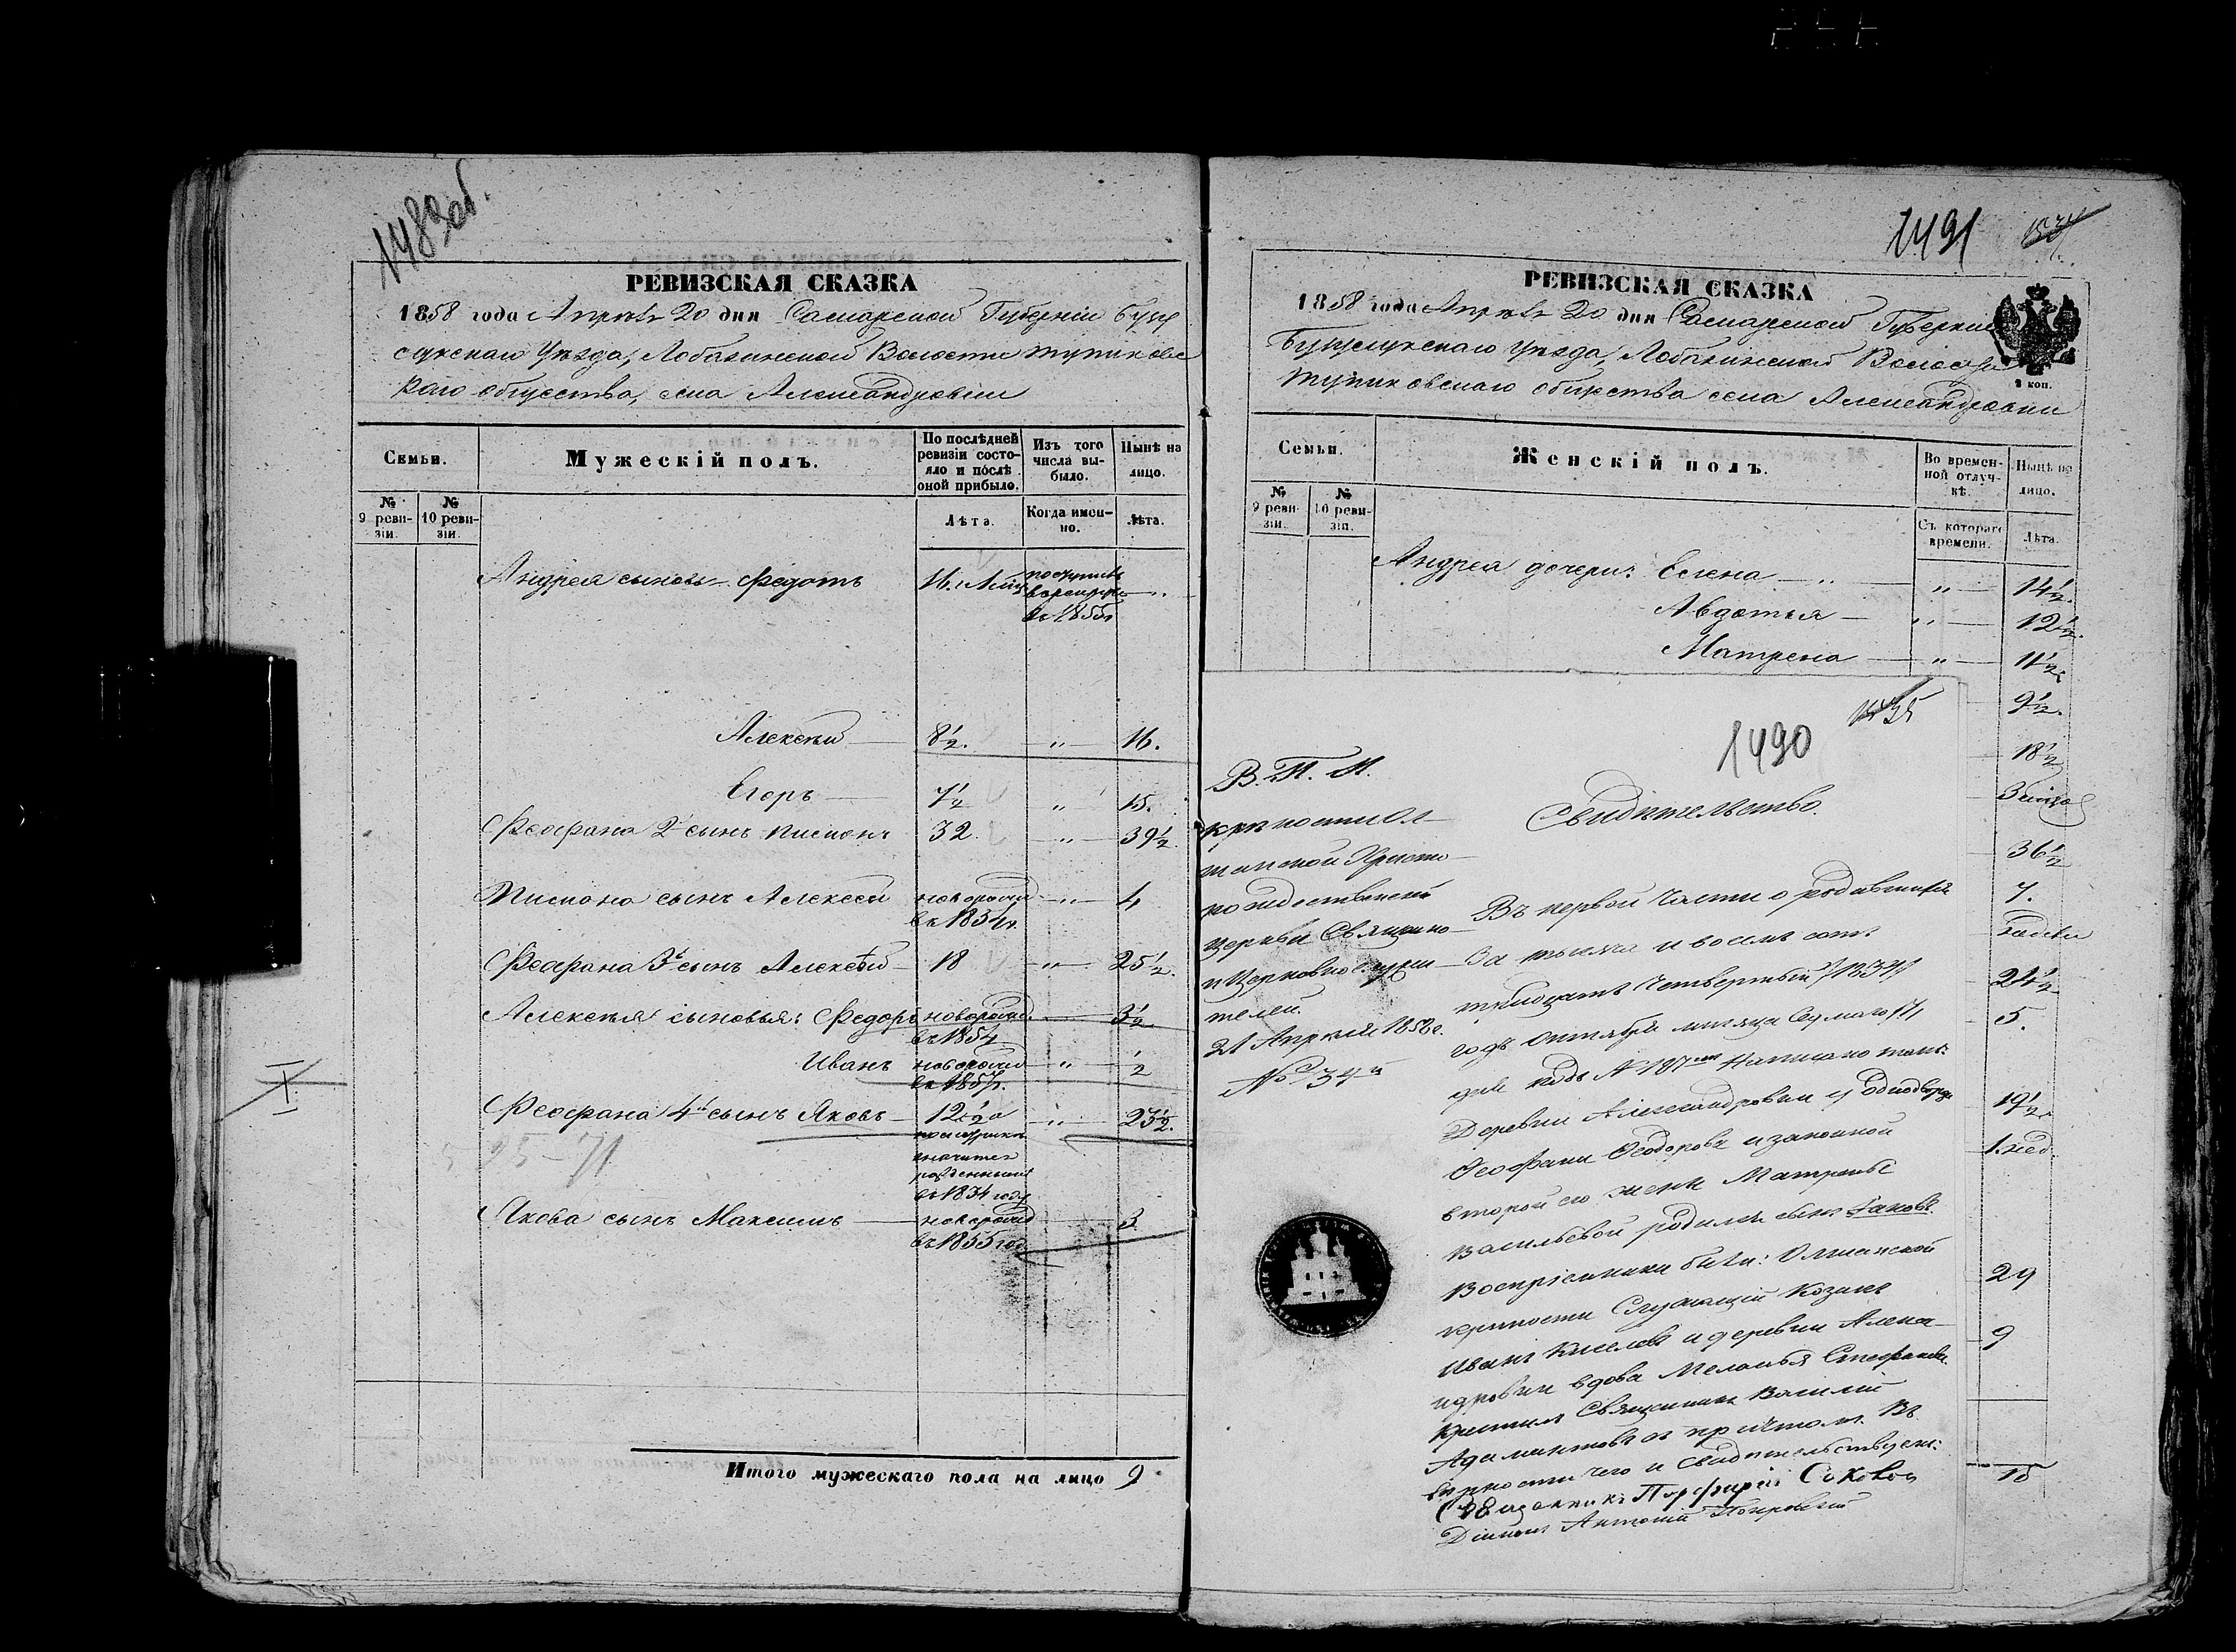 1489об.
РЕВИЗСКАЯ СКАЗКА
1858 года Апрѣля 20 дня Самарской Губерніи Бузу
лукскаго Уѣзда, Лобазинской Волости Тупиковс
каго общества, села Александровки
Семьи.
Мужескій полъ.
По послѣдней ревизіи состо-яло и послѣ оной прибыло.
Изъ того числа вы-было.
Нынѣ на лицо.
№ 9 реви-зіи.
№ 10 реви-зіи.
Лѣта.
Когда имен-но.
Лѣта.
Андрея сыновья Федотъ 16 поступилъ в рекруты в 1855г
Алексѣй 8½. „ 16.
Егоръ 7½ „ 15.
Феофана 2й сынъ Пименъ 32. „ 39½.
Пимена сынъ Алексей новорожд въ 1854г. „ 4
Феофана 3й сынъ Алексѣй 18 „ 25½.
Алексѣя сыновья: Федоръ новорожд. въ 1854 3½
Иванъ новорожд въ 1857г. „ ½
Феофана 4й сынъ Яковъ 12½ а по метрикѣ значится рожденнымъ въ 1834 году „ 23½.
25-71
Якова сынъ Максимъ новорожд въ 1855 год 3
Итого мужескаго пола на лицо 9
1491
РЕВИЗСКАЯ СКАЗКА
1858 года Апрѣля 20 дня Самарской Губерніи
Бузулукскаго Уѣзда, Лобазинской Волости
Тупиковскаго общества села Александровки
Семьи.
Женскій полъ.
Во времен-ной отлуч-кѣ.
Нынѣ на лицо.
№ 9 реви-зіи.
№ 10 реви-зіи.
Съ котораго времени.
Лѣта.
Андрея дочери: Елена „ 14½.
Авдотья „ 12½.
Матрена „ 11½
9½.
18½
36½
7.
24½
5.
19½.
1. нед.
29
9
1490
В. П. И.
Свидѣтельство.
крѣпости Ол
шанской Христо
рождественской
церкви Священно
и Церковнослужи
телей.
21 Апрѣля 1858 г.
№ 34й
Въ первой части о родившихся
За тысяча и восемь сотъ
тридцать Четвертый /1834/
годъ Октября мѣсяца Седьмаго /7/
дня подъ № 187мъ Написано такъ:
Деревни Александровки у однодворца
Феофана Феодорова и законной
второй его жены Матрены
Васильевой родился сынъ Іаковъ.
Воспріемники были: Олшанской
крѣпости Служащій Козакъ
Иванъ Киселевъ и деревни Алекса
ндровки вдова Меланья Стефанова.
Крестилъ Священникъ Василій
Адамантовъ съ причтомъ. Въ
вѣрности чего и свидѣтельствуемъ:
Священникъ Порфирій Соколов
Діаконъ Антоній Покровскій